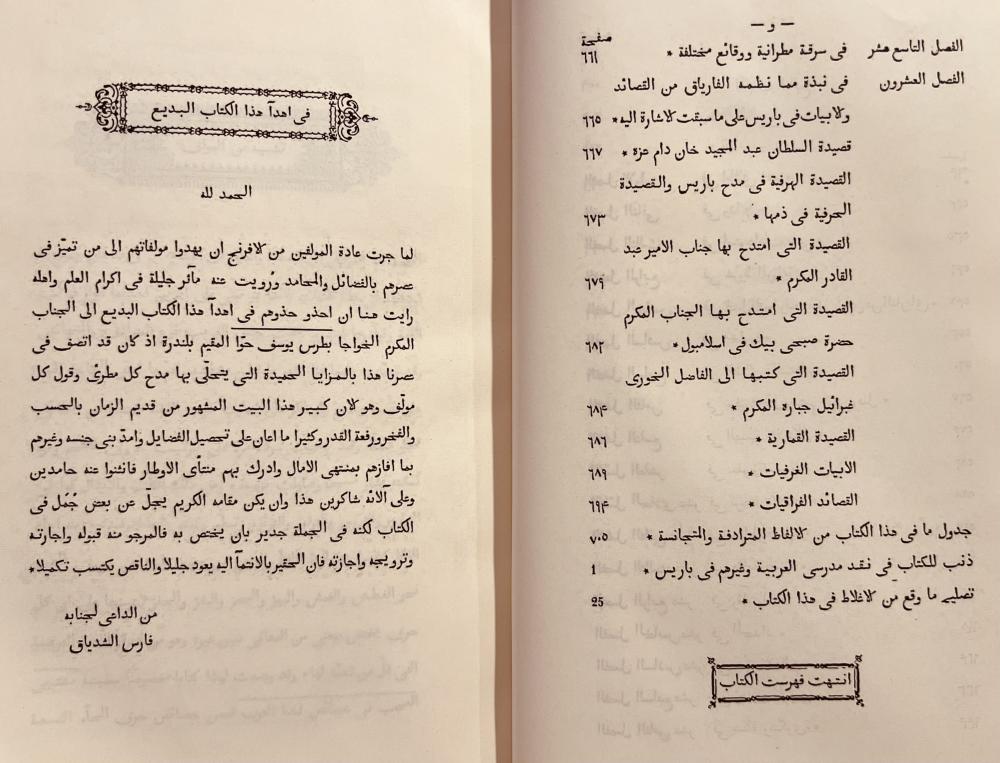 — و —
صفحة
الفصل التاسع عشر في سرقة مطرانية ووقائع مختلفة * ٦٦١
الفصل العشرون في نبذة مما نظمه الفارياق من القصائد
ولابيات في باريس على ما سبقت لاشارة اليه * ٦٦٥
قصيدة السلطان عبد المجيد خان دام عزه * ٦٦٧
القصيدة الهرفية في مدح باريس والقصيدة
الحرفية في ذمها * ٦٧٣
القصيدة التى امتدح بها جناب الامير عبد
القادر المكرم * ٦٧٩
القصيدة التى امتدح بها الجناب المكرم
حضرة صبحى بيك في اسلامبول * ٦٨٢
القصيدة التى كتبها الى الفاضل الخورى
غبرائيل جبارة المكرم * ٦٨۴
القصيدة القمارية * ٦٨٦
الابيات الغرفيات * ٦٨٩
القصائد الفراقيات * ٦٩۴
جدول ما في هذا الكتاب من لالفاظ المترادفة والمتجانسة * ٧٠٥
ذنب للكتاب في نقد مدرسى العربية وغيرهم في باريس * 1
تصليح ما وقع من لاغلاط في هذا الكتاب * 25
انتهت فهرست الكتاب
في اهدآ هذا الكتاب البديع
الحمد لله
لما جرت عادة المولفين من لافرنج ان يهدوا مولفاتهم الى من تميّز في
عصرهم بالفضائل والمحامد ورُويت عنه مآثر جليلة في اكرام العلم واهله
رايت هنا ان احذو حذوهم في اهدآ هذا الكتاب البديع الى الجناب
المكرم الخواجا بطرس يوسف حوّا المقيم بلندرة اذ كان قد اتصف في
عصرنا هذا بالمزايا الحميدة التى يتحلّى بها مدح كل مطرئ وقول كل
مولّف وهو لان كبير هذا البيت المشهور من قديم الزمان بالحسب
والفخر ورفعة القدر وكثيرا ما اعان على تحصيل الفضايل وامدّ بنى جنسه وغيرهم
بما افازهم بمنتهى الامال وادرك بهم منتأى الاوطار فانثنوا عنه حامدين
وعلى آلائه شاكرين هذا وان يكن مقامه الكريم يجلّ عن بعض جُمَل في
الكتاب لكنه في الجملة جدير بان يختص به فالمرجو منه قبوله واجازته
وترويجه واجازته فان الحقير بالانتمآ اليه يعود جليلا والناقص يكتسب تكميلا *
من الداعى لجنابه
فارس الشدياق